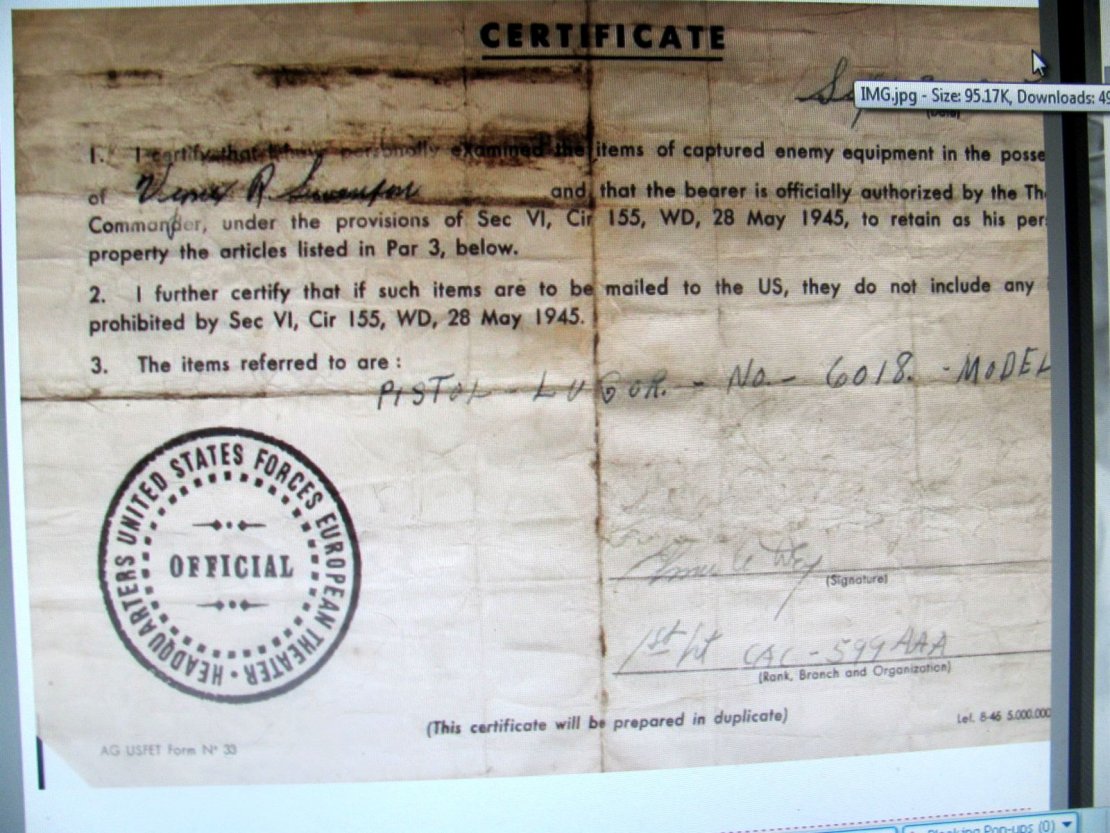 CERTIFICATE
IMG.jpg - Size: 95.17K, Downloads: 49
1. I certify that I have personally examined the items of captured enemy equipment in the posse
of R Swanson and that the bearer is officially authorized by the Th
Commander, under the provisions of Sec VI, Cir 155, WD, 28 May 1945, to retain as his per
property the articles listed in Par 3, below.
2. I further certify that if such items are to be mailed to the US, they do not include any
prohibited by Sec VI, Cir 155, WD, 28 May 1945.
3. The items referred to are :
PISTOL - LUGOR. - No. - 6018. - MODEL
HEADQUARTERS UNITED STATES FORCES EUROPEAN THEATER
OFFICIAL
(Signature)
1st Lt CAC - 599 AAA
(Rank, Branch and Organization)
(This certificate will be prepared in duplicate)
Lef. 8-45 5.000.000
AG USFET Form N° 33
Blocking Pop-ups (0)